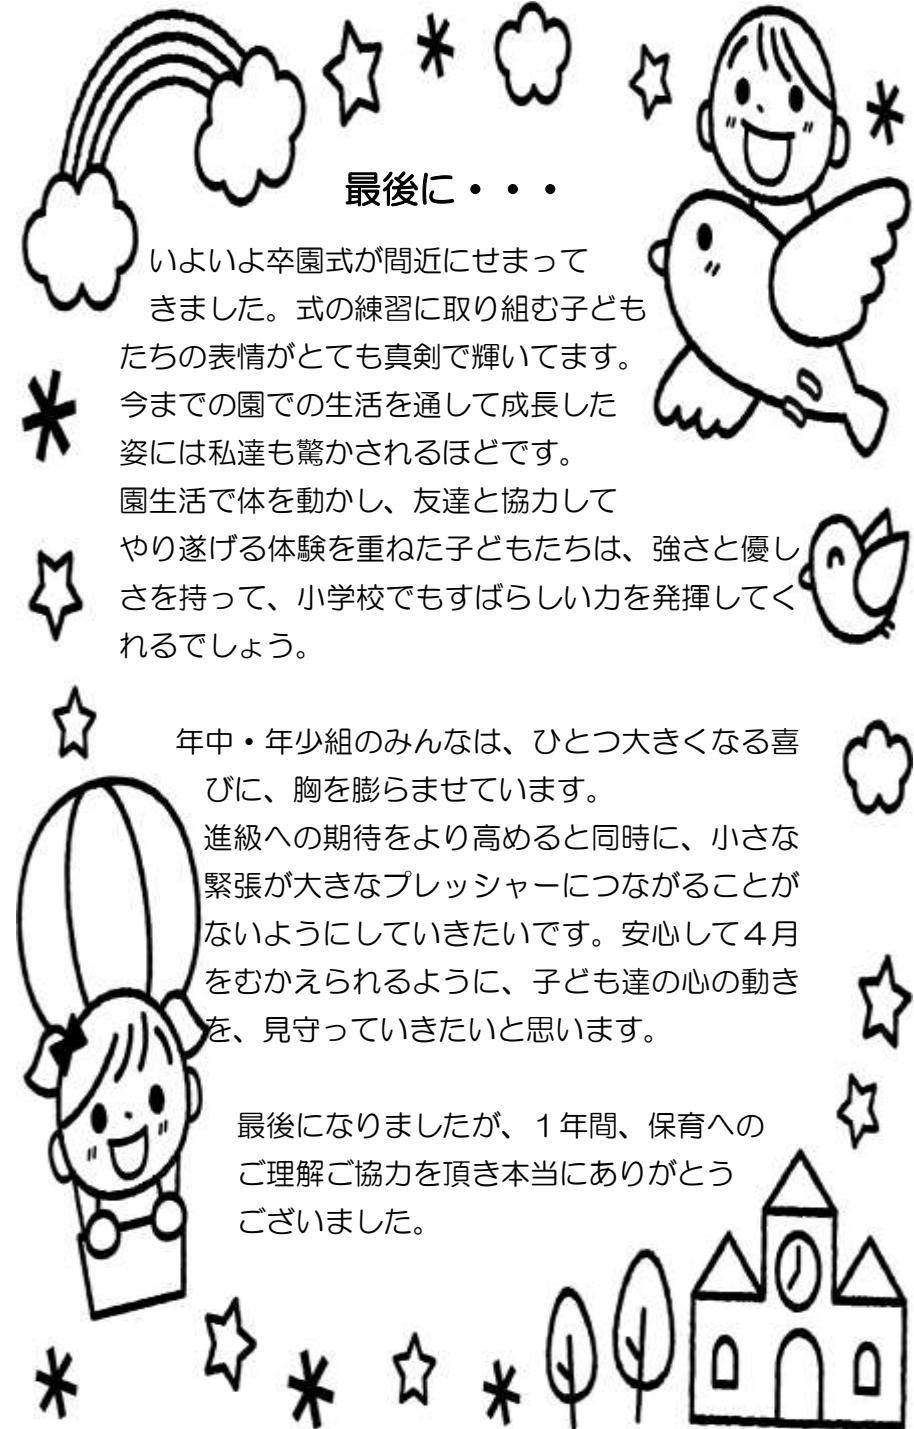 最後に・・・
いよいよ卒園式が間近にせまって
きました。式の練習に取り組む子ども
たちの表情がとても真剣で輝いてます。
今までの園での生活を通して成長した
姿には私達も驚かされるほどです。
園生活で体を動かし、友達と協力して
やり遂げる体験を重ねた子どもたちは、強さと優し
さを持って、小学校でもすばらしい力を発揮してく
れるでしょう。
年中・年少組のみんなは、ひとつ大きくなる喜
びに、胸を膨らませています。
進級への期待をより高めると同時に、小さな
緊張が大きなプレッシャーにつながることが
ないようにしていきたいです。安心して４月
をむかえられるように、子ども達の心の動き
を、見守っていきたいと思います。
最後になりましたが、１年間、保育への
ご理解ご協力を頂き本当にありがとう
ございました。